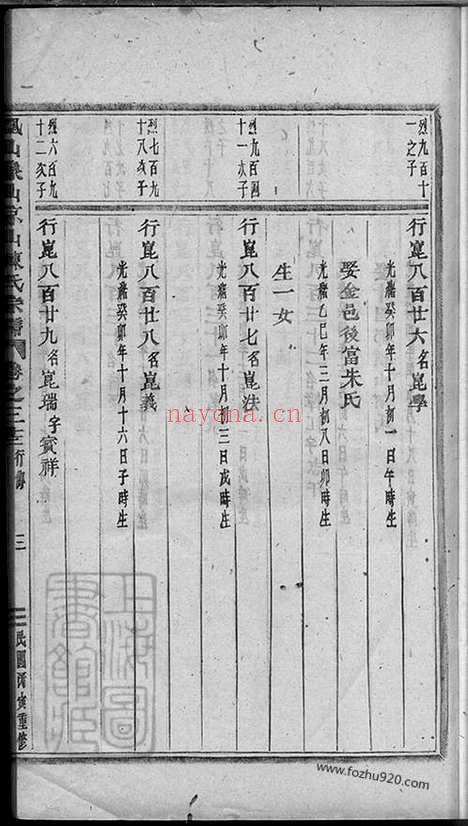 烈九百十
一之子
行崑八百廿六名崑學
光緒癸卯年十月初一日午時生
娶金邑後富朱氏
光緒乙巳年三月初八日卯時生
生一女
烈九百四
十一次子
行崑八百廿七名崑法
光緒癸卯年十月初三日戌時生
烈七百九
十八次子
行崑八百廿八名崑義
光緒癸卯年十月十六日子時生
烈六百九
十二次子
行崑八百廿九名崑瑞字賓祥
山陳氏宗譜 卷之三 行傳 三 民國丙寅重修
上海圖書館藏
nayona.cn
www.fozhu920.com